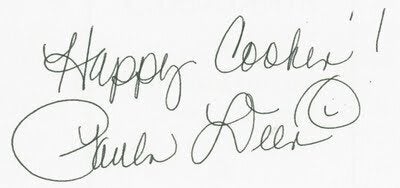 Happy Cookin'!
Paula Deen